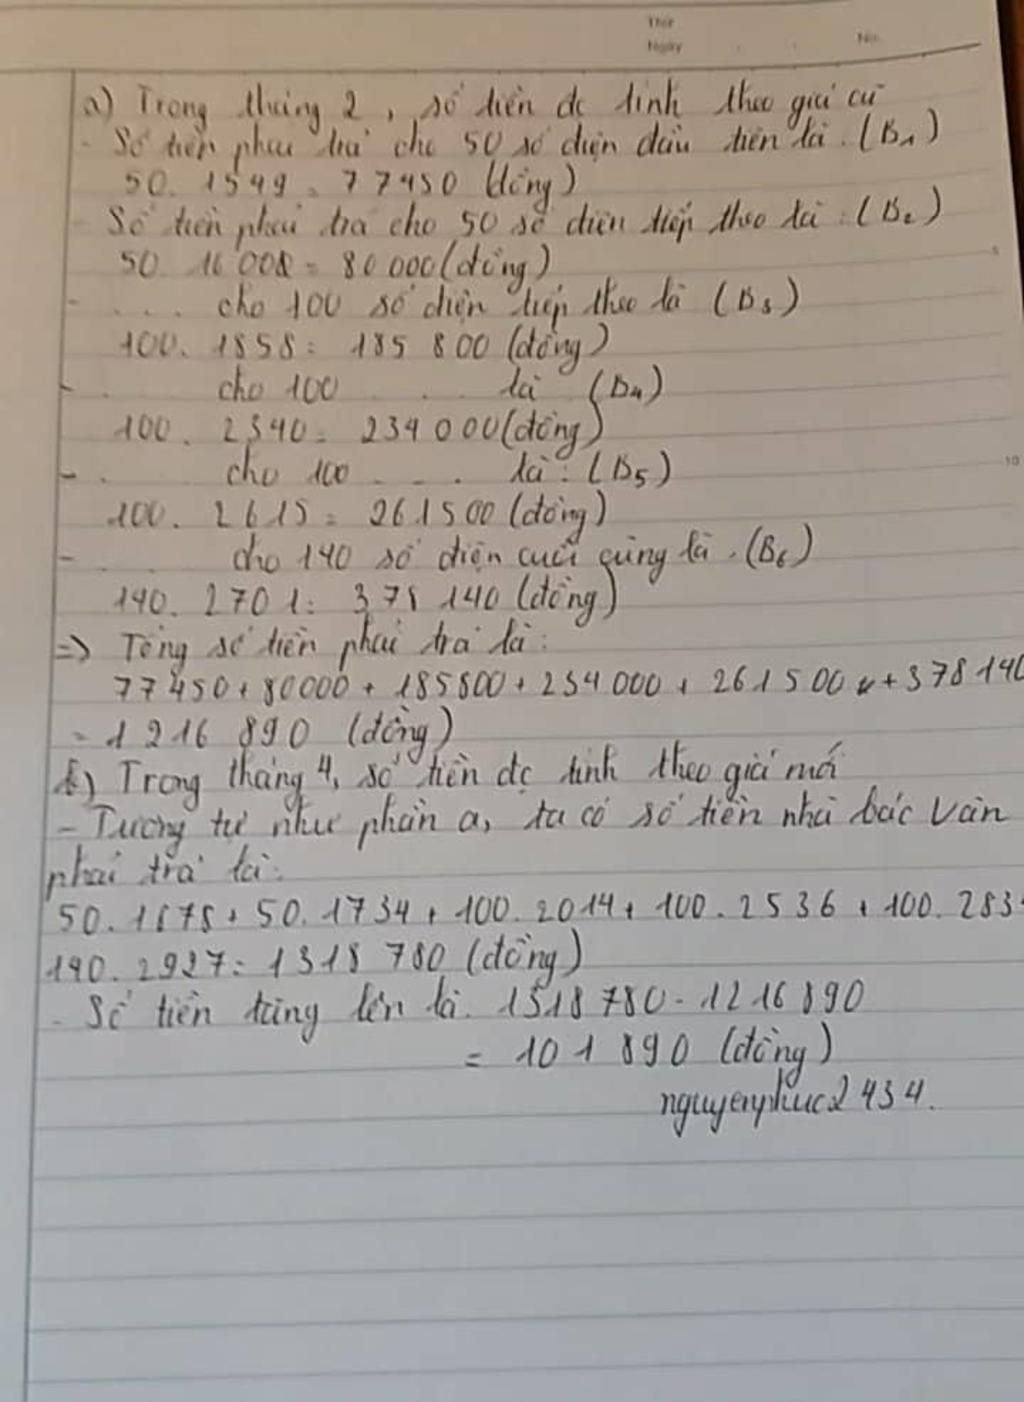 Thứ
Ngày No.
a) Trong tháng 2, số tiền đc tính theo giá cũ
- Số tiền phải trả cho 50 số điện đầu tiên là. (B1)
50. 1549 = 77450 (đồng)
- Số tiền phải trả cho 50 số điện tiếp theo là: (B2)
50. = 80000 (đồng)
- .... cho 100 số điện tiếp theo là (B3)
100. 1858 = 185 800 (đồng)
- . cho 100 . . . là (B4)
100. 2340 = 234 000 (đồng)
- . cho 100 . . . là: (B5)
100. 2615 = 261500 (đồng)
- . cho 140 số điện cuối cùng là. (B6)
140. 2701 = 378 140 (đồng)
=> Tổng số tiền phải trả là:
77450 + 80000 + 185800 + 234000 + 261500 + 378140
= 1 216 890 (đồng)
b) Trong tháng 4, số tiền đc tính theo giá mới
- Tương tự như phần a, ta có số tiền nhà bác Vân
phải trả là:
50. 1678 + 50. 1734 + 100. 2014 + 100. 2536 + 100. 283
140. 2927 = 1318 780 (đồng)
- Số tiền tăng lên là. 1318 780 - 1216 890
= 101 890 (đồng)
nguyenphuc2434.